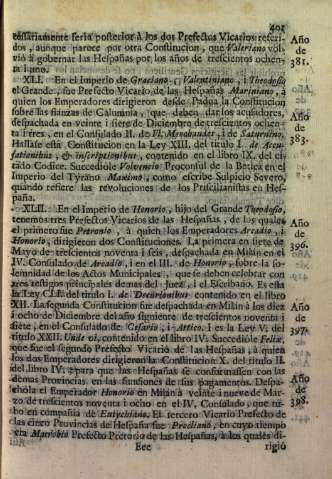 401
cessariamente seria posterior à los dos Prefectos Vicarios referi-
dos, aunque parece por otra Constitucion, que Valeriano vol-
vió à gobernar las Hespañas por los años de trescientos ochen-
ta i uno.
Año
de
381.
XLI. En el Imperio de Graciano, Valentiniano, i Theodosio
el Grande, fue Prefecto Vicario de las Hespañas Mariniano, à
quien los Emperadores dirigieron desde Padua la Constitucion
sobre las fianzas de Calumnia, que deben dar los acusadores,
despachada en veinte i siete de Diciembre de trescientos ochen-
ta i tres, en el Consulado II. de Fl. Merobaudes, i de Saturnino.
Hallase esta Constitucion en la Ley XIII. del titulo I. de Accu-
sationibus, & inscriptionibus, contenido en el libro IX. del ci-
tado Codice. Succediole Volvencio Proconsul de la Betica en el
Imperio del Tyrano Maximo, como escribe Sulpicio Severo,
quando refiere las revoluciones de los Priscilianistas en Hes-
paña.
Año
de
383.
XLII. En el Imperio de Honorio, hijo del Grande Theodosio,
tenemos tres Prefectos Vicarios de las Hespañas, de los quales
el primero fue Petronio, à quien los Emperadores Arcadio, i
Honorio, dirigieron dos Constituciones. La primera en siete de
Mayo de trescientos noventa i seis, despachada en Milán en el
IV. Consulado de Arcadio, i en el III. de Honorio, sobre la so-
lemnidad de los Actos Municipales, que se deben celebrar con
tres testigos principales demas del Juez, i el Escribano. Es esta
la Ley CLI. del titulo I. de Decurionibus contenido en el libro
XII. La segunda Constitucion fue despachada en Milán à los diez
i ocho de Diciembre del año siguiente de trescientos noventa i
siete, en el Consulado de Cesario, i Attico. I es la Ley V. del
titulo XXII. Unde vi, contenido en el libro IV. Succediole Felix,
que fue el segundo Prefecto Vicario de las Hespañas, à quien
los dos Emperadores dirigieron la Constitucion X. del titulo II.
del libro IV. para que las Hespañas se conformassen con las
demas Provincias, en las funsiones de sus pagamentos. Despa-
chola el Emperador Honorio en Milán à veinte i nueve de Mar-
zo de trescientos noventa i ocho en el IV. Consulado, que tu-
bo en compañia de Eutychiano. El tercero Vicario Prefecto de
las cinco Provincias de Hespaña fue Procliano, en cuyo tiempo
era Macrobio Prefecto Pretorio de las Hespañas, à los quales di-
Año
de
396.
Año
de
397.
Año
de
398.
Eee
rigió